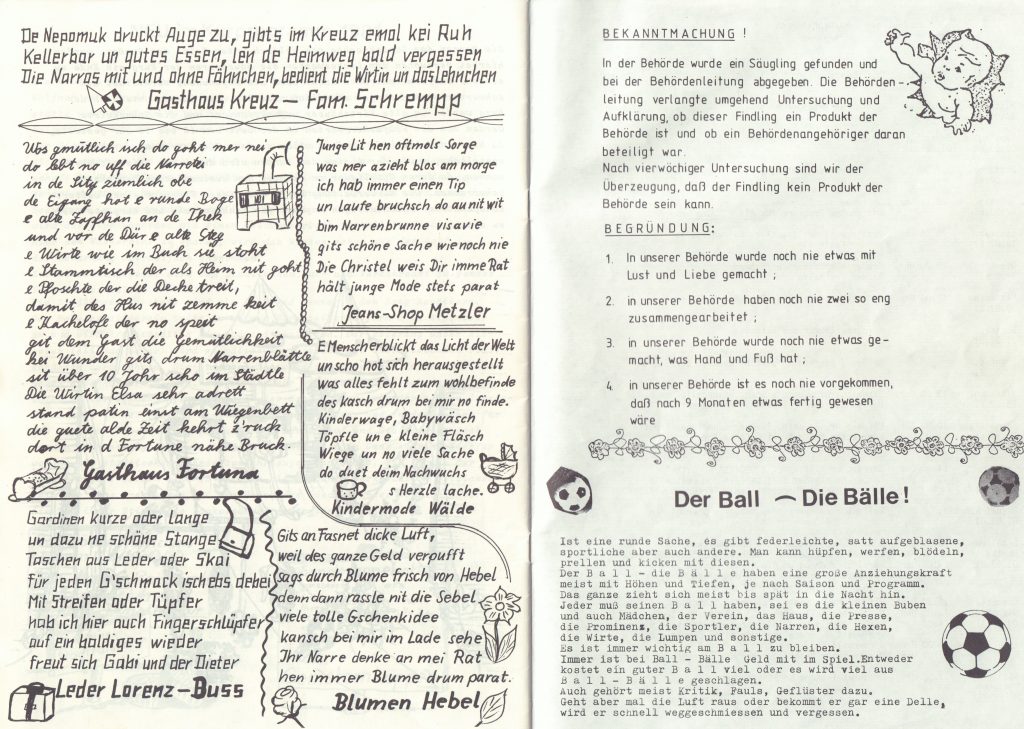 De Nepomuk druckt Auge zu, gibts im Kreuz emol kei Ruh
Kellerbar un gutes Essen, len de Heimweg bald vergessen
Die Narros mit und ohne Fähnchen, bedient die Wirtin un das Lehnchen
Gasthaus Kreuz – Fam. Schrempp
Wos gmütlich isch do goht mer nei
do lebt no uff die Narretei
in de City ziemlich obe
de Eigang hot e runde Boge
e alte Zapfhan an de Thek
und vor de Dür e alte Steg
e Wirte wie im Buch sie stoht
e Stammtisch der als Heim nit goht
e Pfoschte der die Decke treit,
damit des Hus nit zemme keit
e Kachelofe der no speit
git dem Gast die Gemütlichkeit
kei Wunder gits drum Narrenblättle
sit über 10 Johr scho im Städtle
Die Wirtin Elsa sehr adrett
stand patin einst am Wiegenbett
die guete alde Zeit kehrt z'ruck
dort in d Fortune nähe Bruck.
Gasthaus Fortuna
Gardinen kurze oder lange
un dazu ne schöne Stange
Taschen aus Leder oder Skai
für jeden G'schmack isch ebs debei
Mit Streifen oder Tüpfer
hab ich hier auch Fingerschlüpfer
auf ein baldiges wieder
freut sich Gabi und der Dieter
Leder Lorenz – Buss
Junge Lit hen oftmols Sorge
was mer azieht blos am morge
ich hab immer einen Tip
un laufe bruchsch do au nit wit
bim Narrenbrunne visavie
gits schöne Sache wie noch nie
Die Christel weis Dir imme Rat
hält junge Mode stets parat
Jeans-Shop Metzler
E Mensch erblickt das Licht der Welt
un scho hot sich herausgestellt
was alles fehlt zum wohlbefinde
des kasch drum bei mir no finde.
Kinderwage, Babywäsch
Töpfle un e kleine Fläsch
Wiege un no viele Sache
do duet deim Nachwuchs
s Herzle lache.
Kindermode Wälde
Gits an Fasnet dicke Luft,
weil des ganze Geld verpufft
sags durch Blume frisch von Hebel
denn dann rassle nit die Sebel
viele tolle Gschenkidee
kansch bei mir im Lade sehe
Ihr Narre denke an mei Rat
hen immer Blume drum parat.
Blumen Hebel
BEKANNTMACHUNG !
In der Behörde wurde ein Säugling gefunden und
bei der Behördenleitung abgegeben. Die Behörden-
leitung verlangte umgehend Untersuchung und
Aufklärung, ob dieser Findling ein Produkt der
Behörde ist und ob ein Behördenangehöriger daran
beteiligt war.
Nach vierwöchiger Untersuchung sind wir der
Überzeugung, daß der Findling kein Produkt der
Behörde sein kann.
BEGRÜNDUNG:
1. In unserer Behörde wurde noch nie etwas mit
Lust und Liebe gemacht ;
2. in unserer Behörde haben noch nie zwei so eng
zusammengearbeitet ;
3. in unserer Behörde wurde noch nie etwas ge-
macht, was Hand und Fuß hat ;
4. in unserer Behörde ist es noch nie vorgekommen,
daß nach 9 Monaten etwas fertig gewesen
wäre
Der Ball – Die Bälle !
Ist eine runde Sache, es gibt federleichte, satt aufgeblasene,
sportliche aber auch andere. Man kann hüpfen, werfen, blödeln,
prellen und kicken mit diesen.
Der B a l l - die B ä l l e haben eine große Anziehungskraft
meist mit Höhen und Tiefen, je nach Saison und Programm.
Das ganze zieht sich meist bis spät in die Nacht hin.
Jeder muß seinen B a l l haben, sei es die kleinen Buben
und auch Mädchen, der Verein, das Haus, die Presse,
die Prominenz, die Sportler, die Narren, die Hexen,
die Wirte, die Lumpen und sonstige.
Es ist immer wichtig am B a l l zu bleiben.
Immer ist bei Ball - Bälle Geld mit im Spiel.Entweder
kostet ein guter B a l l viel oder es wird viel aus
B a l l - B ä l l e geschlagen.
Auch gehört meist Kritik, Fauls, Geflüster dazu.
Geht aber mal die Luft raus oder bekommt er gar eine Delle,
wird er schnell weggeschmiessen und vergessen.